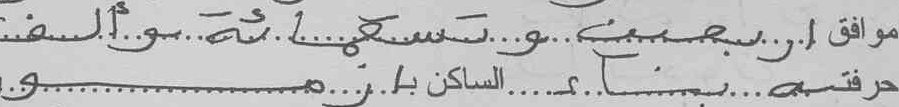 موافق اربعين وتسعمائة وألف
حرفته بناء الساكن بازمو